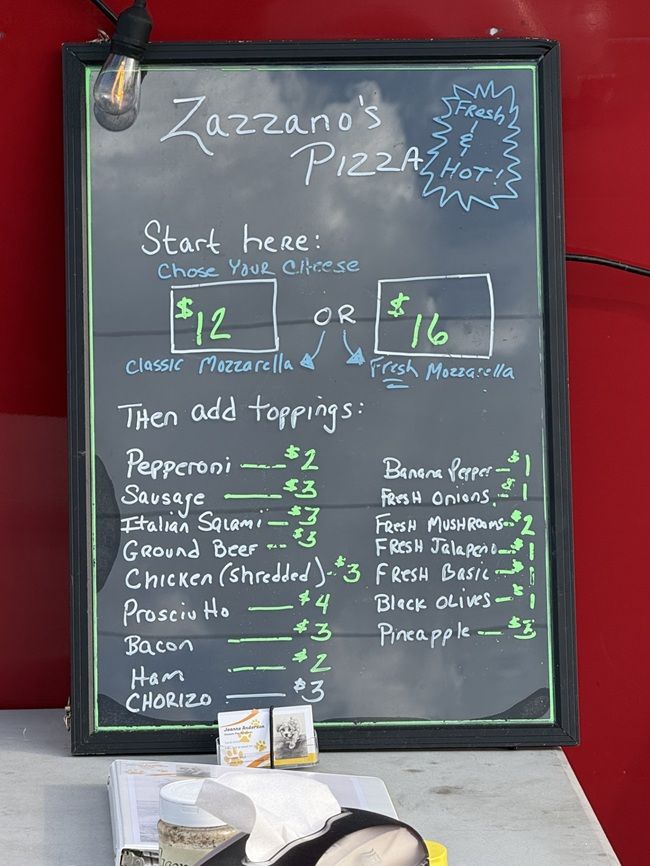 Zazzano's
Pizza
Fresh
&
HOT!
Start here:
Chose Your Cheese
$12 OR $16
Classic Mozzarella Fresh Mozzarella
Then add toppings:
Pepperoni — $2
Sausage — $3
Italian Salami — $3
Ground Beef -- $3
Chicken (shredded) - $3
Prosciutto — $4
Bacon — $3
Ham — $2
CHORIZO — $3
Banana Pepper - $1
Fresh Onions - $1
Fresh Mushrooms - $2
Fresh Jalapeno - $1
Fresh Basic - $1
Black Olives - $1
Pineapple — $3
Jeanne Anderson